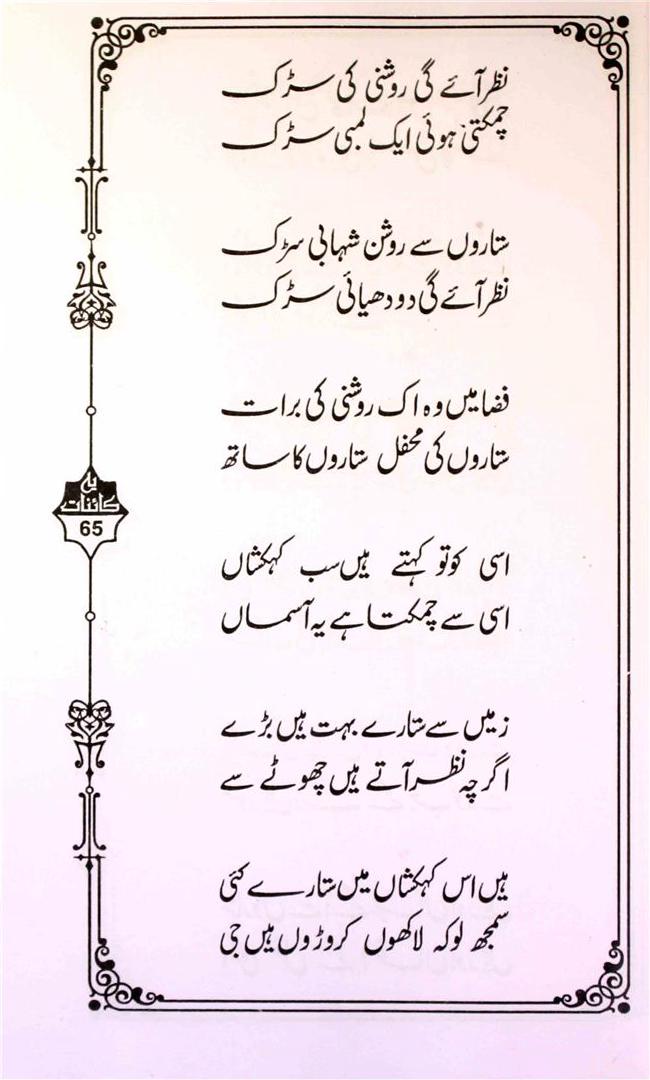 نظر آئے گی روشنی کی سڑک
چمکتی ہوئی ایک لمبی سڑک
ستاروں سے روشن شہابی سڑک
نظر آئے گی دودھیائی سڑک
فضا میں وہ اک روشنی کی برات
ستاروں کی محفل ستاروں کا ساتھ
یہ
کائنات
65
اسی کو تو کہتے ہیں سب کہکشاں
اسی سے چمکتا ہے یہ آسماں
زمیں سے ستارے بہت ہیں بڑے
اگرچہ نظر آتے ہیں چھوٹے سے
ہیں اس کہکشاں میں ستارے کئی
سمجھ لو کہ لاکھوں کروڑوں ہیں جی